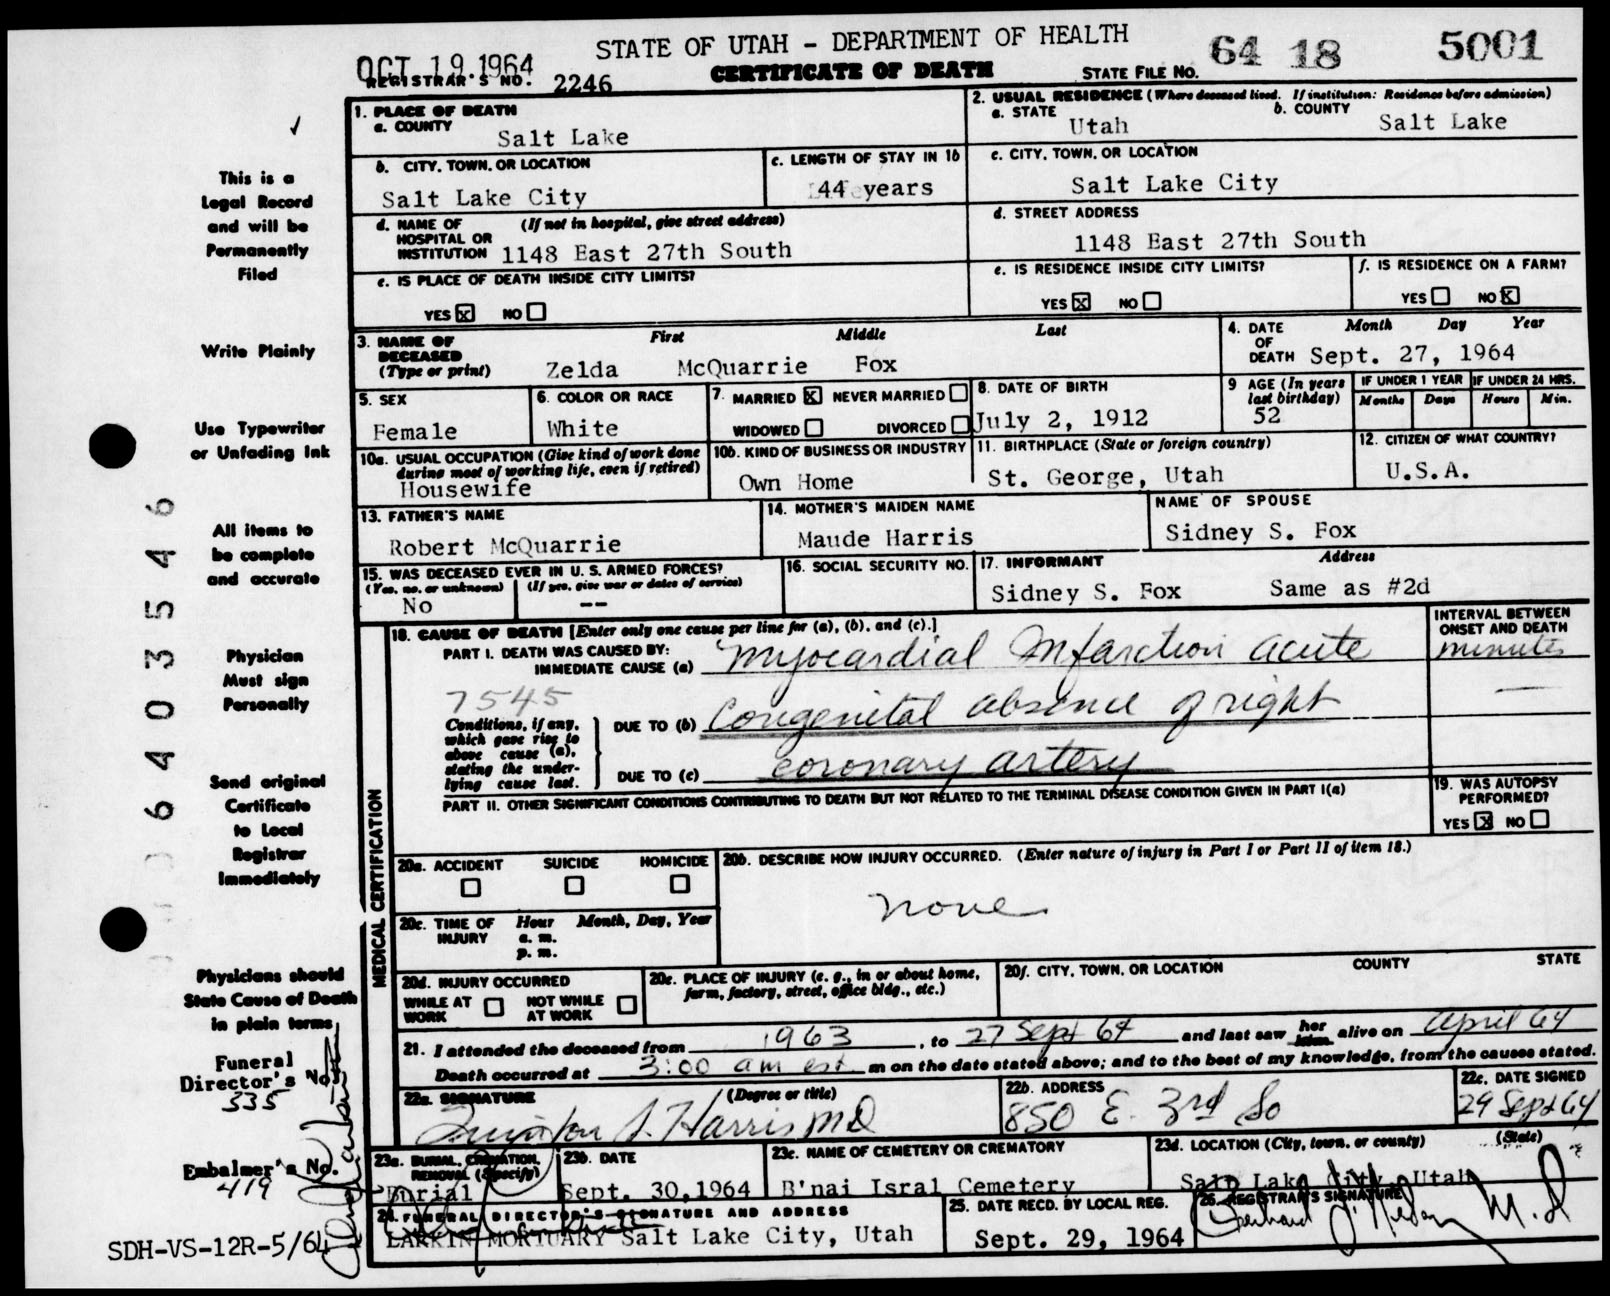 OCT 19.1964
STATE OF UTAH - DEPARTMENT OF HEALTH
CERTIFICATE OF DEATH
REGISTRAR'S NO. 2246
STATE FILE NO. 64 18 5001
1. PLACE OF DEATH
a. COUNTY
Salt Lake
2. USUAL RESIDENCE (Where deceased lived. If institution: Residence before admission)
a. STATE Utah
b. COUNTY Salt Lake
b. CITY, TOWN, OR LOCATION
Salt Lake City
c. LENGTH OF STAY IN 1b
44 years
c. CITY, TOWN, OR LOCATION
Salt Lake City
d. NAME OF HOSPITAL OR INSTITUTION (If not in hospital, give street address)
1148 East 27th South
d. STREET ADDRESS
1148 East 27th South
e. IS PLACE OF DEATH INSIDE CITY LIMITS?
YES X NO
e. IS RESIDENCE INSIDE CITY LIMITS?
YES X NO
f. IS RESIDENCE ON A FARM?
YES NO X
3. NAME OF DECEASED (Type or print)
First Middle Last
Zelda McQuarrie Fox
4. DATE OF DEATH Month Day Year
Sept. 27, 1964
5. SEX
Female
6. COLOR OR RACE
White
7. MARRIED X NEVER MARRIED
WIDOWED DIVORCED
8. DATE OF BIRTH
July 2, 1912
9 AGE (In years last birthday)
52
IF UNDER 1 YEAR
Months Days
IF UNDER 24 HRS.
Hours Min.
10a. USUAL OCCUPATION (Give kind of work done during most of working life, even if retired)
Housewife
10b. KIND OF BUSINESS OR INDUSTRY
Own Home
11. BIRTHPLACE (State or foreign country)
St. George, Utah
12. CITIZEN OF WHAT COUNTRY?
U.S.A.
13. FATHER'S NAME
Robert McQuarrie
14. MOTHER'S MAIDEN NAME
Maude Harris
NAME OF SPOUSE
Sidney S. Fox
15. WAS DECEASED EVER IN U. S. ARMED FORCES?
(Yes, no, or unknown) (If yes, give war or dates of service)
No --
16. SOCIAL SECURITY NO.
17. INFORMANT Address
Sidney S. Fox Same as #2d
MEDICAL CERTIFICATION
18. CAUSE OF DEATH [Enter only one cause per line for (a), (b), and (c).]
INTERVAL BETWEEN ONSET AND DEATH
PART I. DEATH WAS CAUSED BY:
IMMEDIATE CAUSE (a) Myocardial Infarction acute
minutes
7545
Conditions, if any, which gave rise to above cause (a), stating the underlying cause last.
DUE TO (b) Congenital absence of right
DUE TO (c) coronary artery
PART II. OTHER SIGNIFICANT CONDITIONS CONTRIBUTING TO DEATH BUT NOT RELATED TO THE TERMINAL DISEASE CONDITION GIVEN IN PART I(a)
19. WAS AUTOPSY PERFORMED?
YES X NO
20a. ACCIDENT SUICIDE HOMICIDE
20b. DESCRIBE HOW INJURY OCCURRED. (Enter nature of injury in Part I or Part II of item 18.)
none
20c. TIME OF INJURY Hour Month, Day, Year
a. m.
p. m.
20d. INJURY OCCURRED
WHILE AT WORK NOT WHILE AT WORK
20e. PLACE OF INJURY (e. g., in or about home, farm, factory, street, office bldg., etc.)
20f. CITY, TOWN, OR LOCATION COUNTY STATE
21. I attended the deceased from 1963, to 27 Sept 64 and last saw her him alive on April 64
Death occurred at 3:00 am est m on the date stated above; and to the best of my knowledge, from the causes stated.
22a. SIGNATURE (Degree or title)
S. Harris MD
22b. ADDRESS
850 E. 3rd So
22c. DATE SIGNED
29 Sept 64
23a. BURIAL, CREMATION, REMOVAL (Specify)
Burial
23b. DATE
Sept. 30,1964
23c. NAME OF CEMETERY OR CREMATORY
B'nai Isral Cemetery
23d. LOCATION (City, town, or county) (State)
Salt Lake City, Utah
24. FUNERAL DIRECTOR'S SIGNATURE AND ADDRESS
LARKIN MORTUARY Salt Lake City, Utah
25. DATE RECD. BY LOCAL REG.
Sept. 29, 1964
26. REGISTRAR'S SIGNATURE
M.D
This is a
Legal Record
and will be
Permanently
Filed
Write Plainly
Use Typewriter
or Unfading Ink
All items to
be complete
and accurate
Physician
Must sign
Personally
Send original
Certificate
to Local
Registrar
Immediately
Physicians should
State Cause of Death
in plain terms
Funeral
Director's No.
335
Embalmer's No.
419
SDH-VS-12R-5/64
64035546